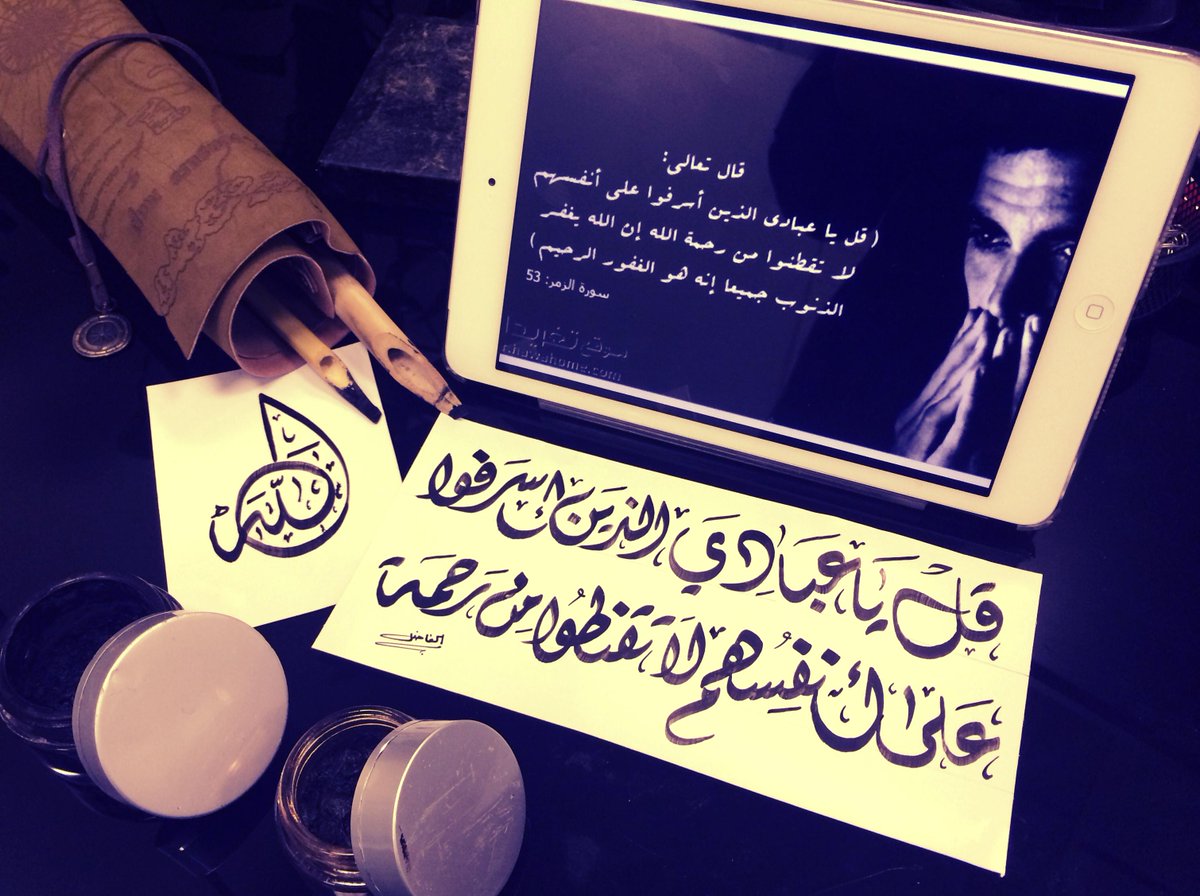 قال تعالى:
( قل يا عبادى الذين أسرفوا على أنفسهم
لا تقطنوا من رحمة الله إن الله يغفر
الذنوب جميعا إنه هو الغفور الرحيم)
سورة الزمر: 53
موقع تغريدا
hawahome.com
قُل يَا عبَادِي الذيَن أسرَفوا
عَلى أنفِسُهم لَا تقنطُوا مِن رَحمَة